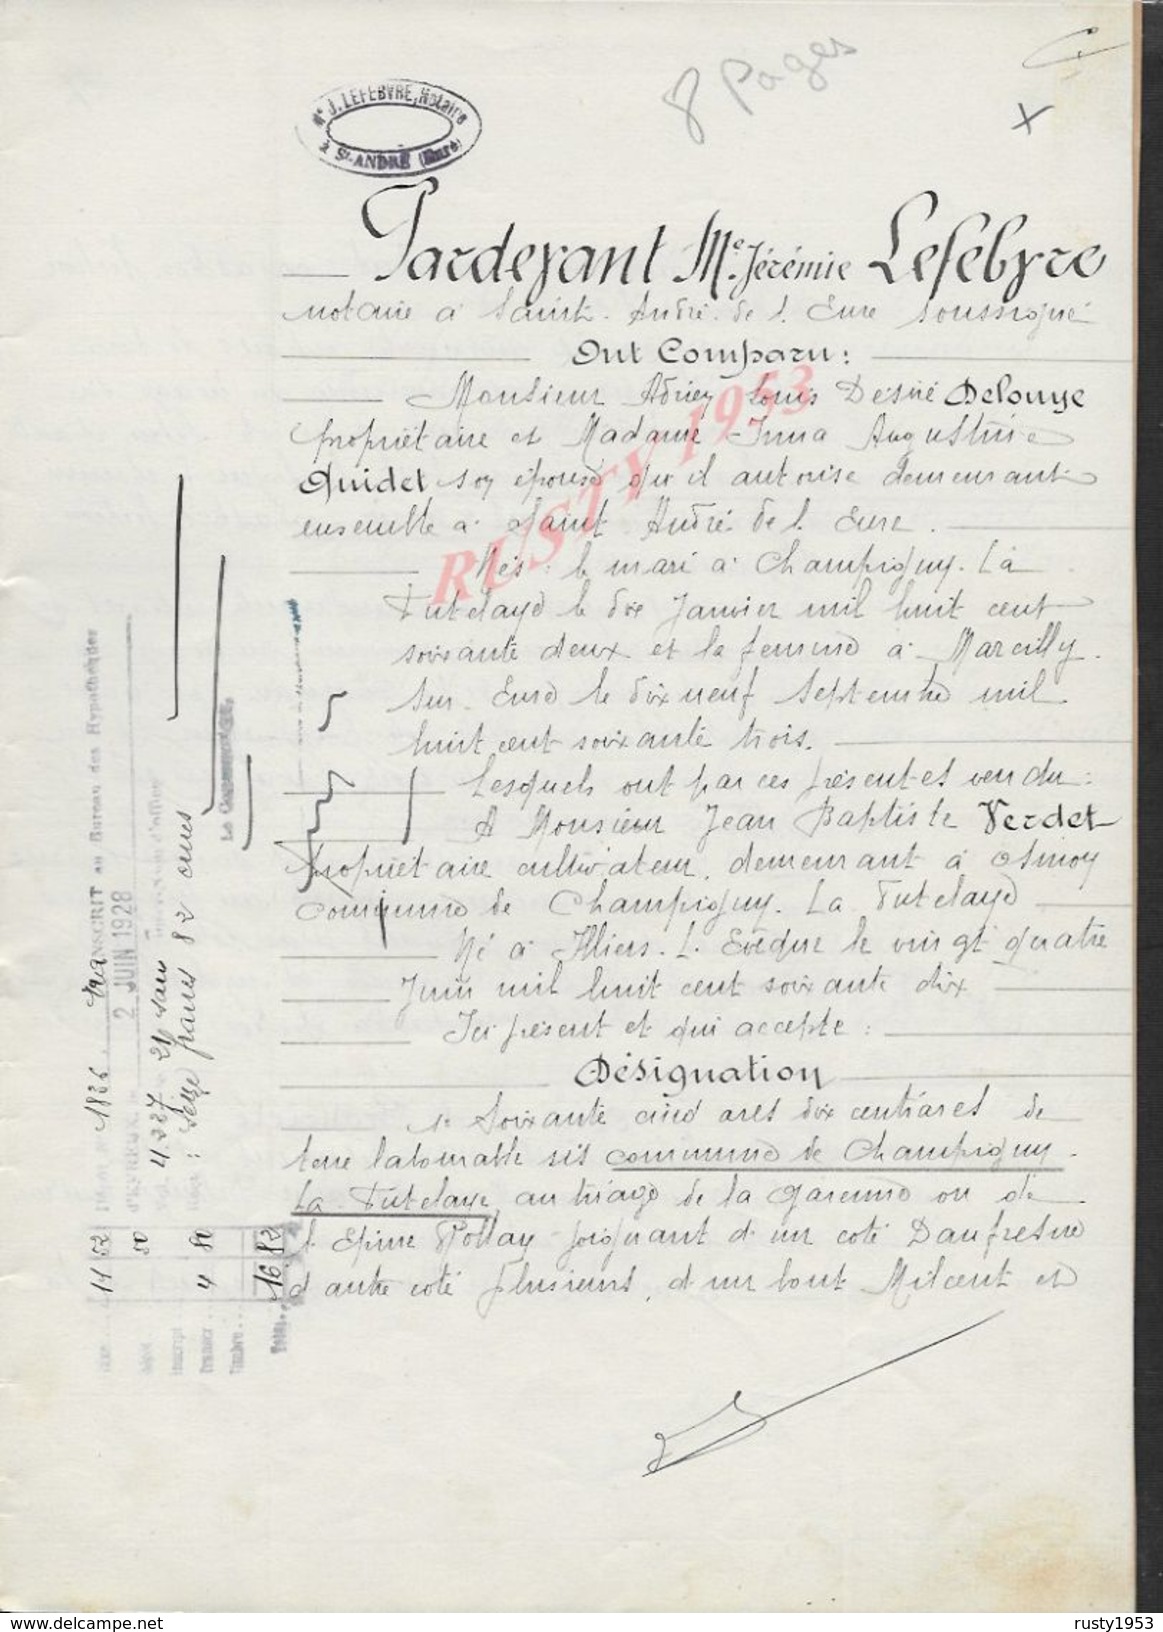 8 Pages
Me J. LEFEBVRE, Notaire
à St-ANDRÉ (Eure)
Pardevant Me. Jérémie Lefebvre
notaire à Saint-André-de-l'Eure soussigné
Ont Comparu:
Monsieur Adrien Louis Désiré Delouye
propriétaire et Madame Irma Augustine
Quidet son épouse qu'il autorise demeurant
ensemble à Saint André de l'Eure.
Nés: le mari à Champigny-La
Futelaye le dix Janvier mil huit cent
soixante deux et la femme à Marcilly-
sur-Eure le dix neuf Septembre mil
huit cent soixante trois.
Lesquels ont par ces présentes vendu:
A Monsieur Jean Baptiste Verdet
propriétaire cultivateur, demeurant à Osmoy
commune de Champigny-La-Futelaye
Né à Illiers-L'Evêque le vingt quatre
Juin mil huit cent soixante dix
Ici présent et qui accepte:
Désignation
1° Soixante cinq ares dix centiares de
terre labourable sis commune de Champigny-
La Futelaye, au triage de la Garenne ou de
l'Epine Pollay joignant d'un coté Daufresne
d'autre coté plusieurs, d'un bout Milcent et
TRANSCRIT au Bureau des Hypothèques
2 JUIN 1928
1836
4.327 21 sans
Seize francs 82 cmes
Le Conservateur,
11 52
50
4 80
16.82
RUSTY 1953
www.delcampe.net
rusty1953